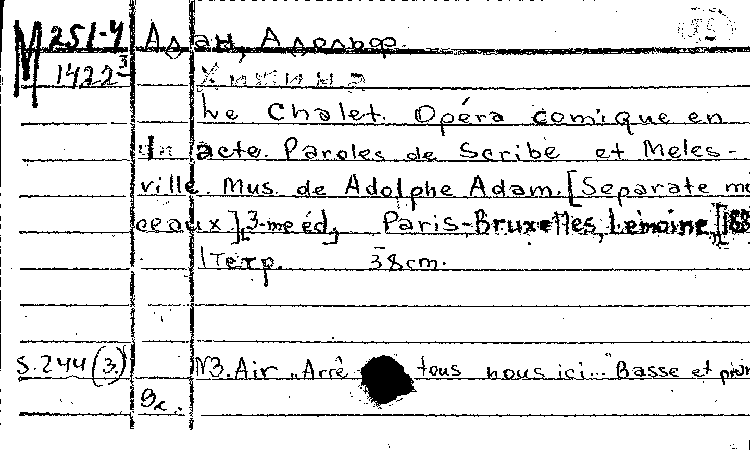 M 251-4 Адан, Адольф.
1422³ Хижина
Le Chalet. Opéra comique en
un acte. Paroles de Scribe et Meles-
ville. Mus. de Adolphe Adam. [Separate mo
ceaux], 3-me éd., Paris-Bruxelles, Lemoine, [188
1тетр. 38cm.
S.244 (3.) N3. Air „Arrê tous nous ici..." Basse et pian